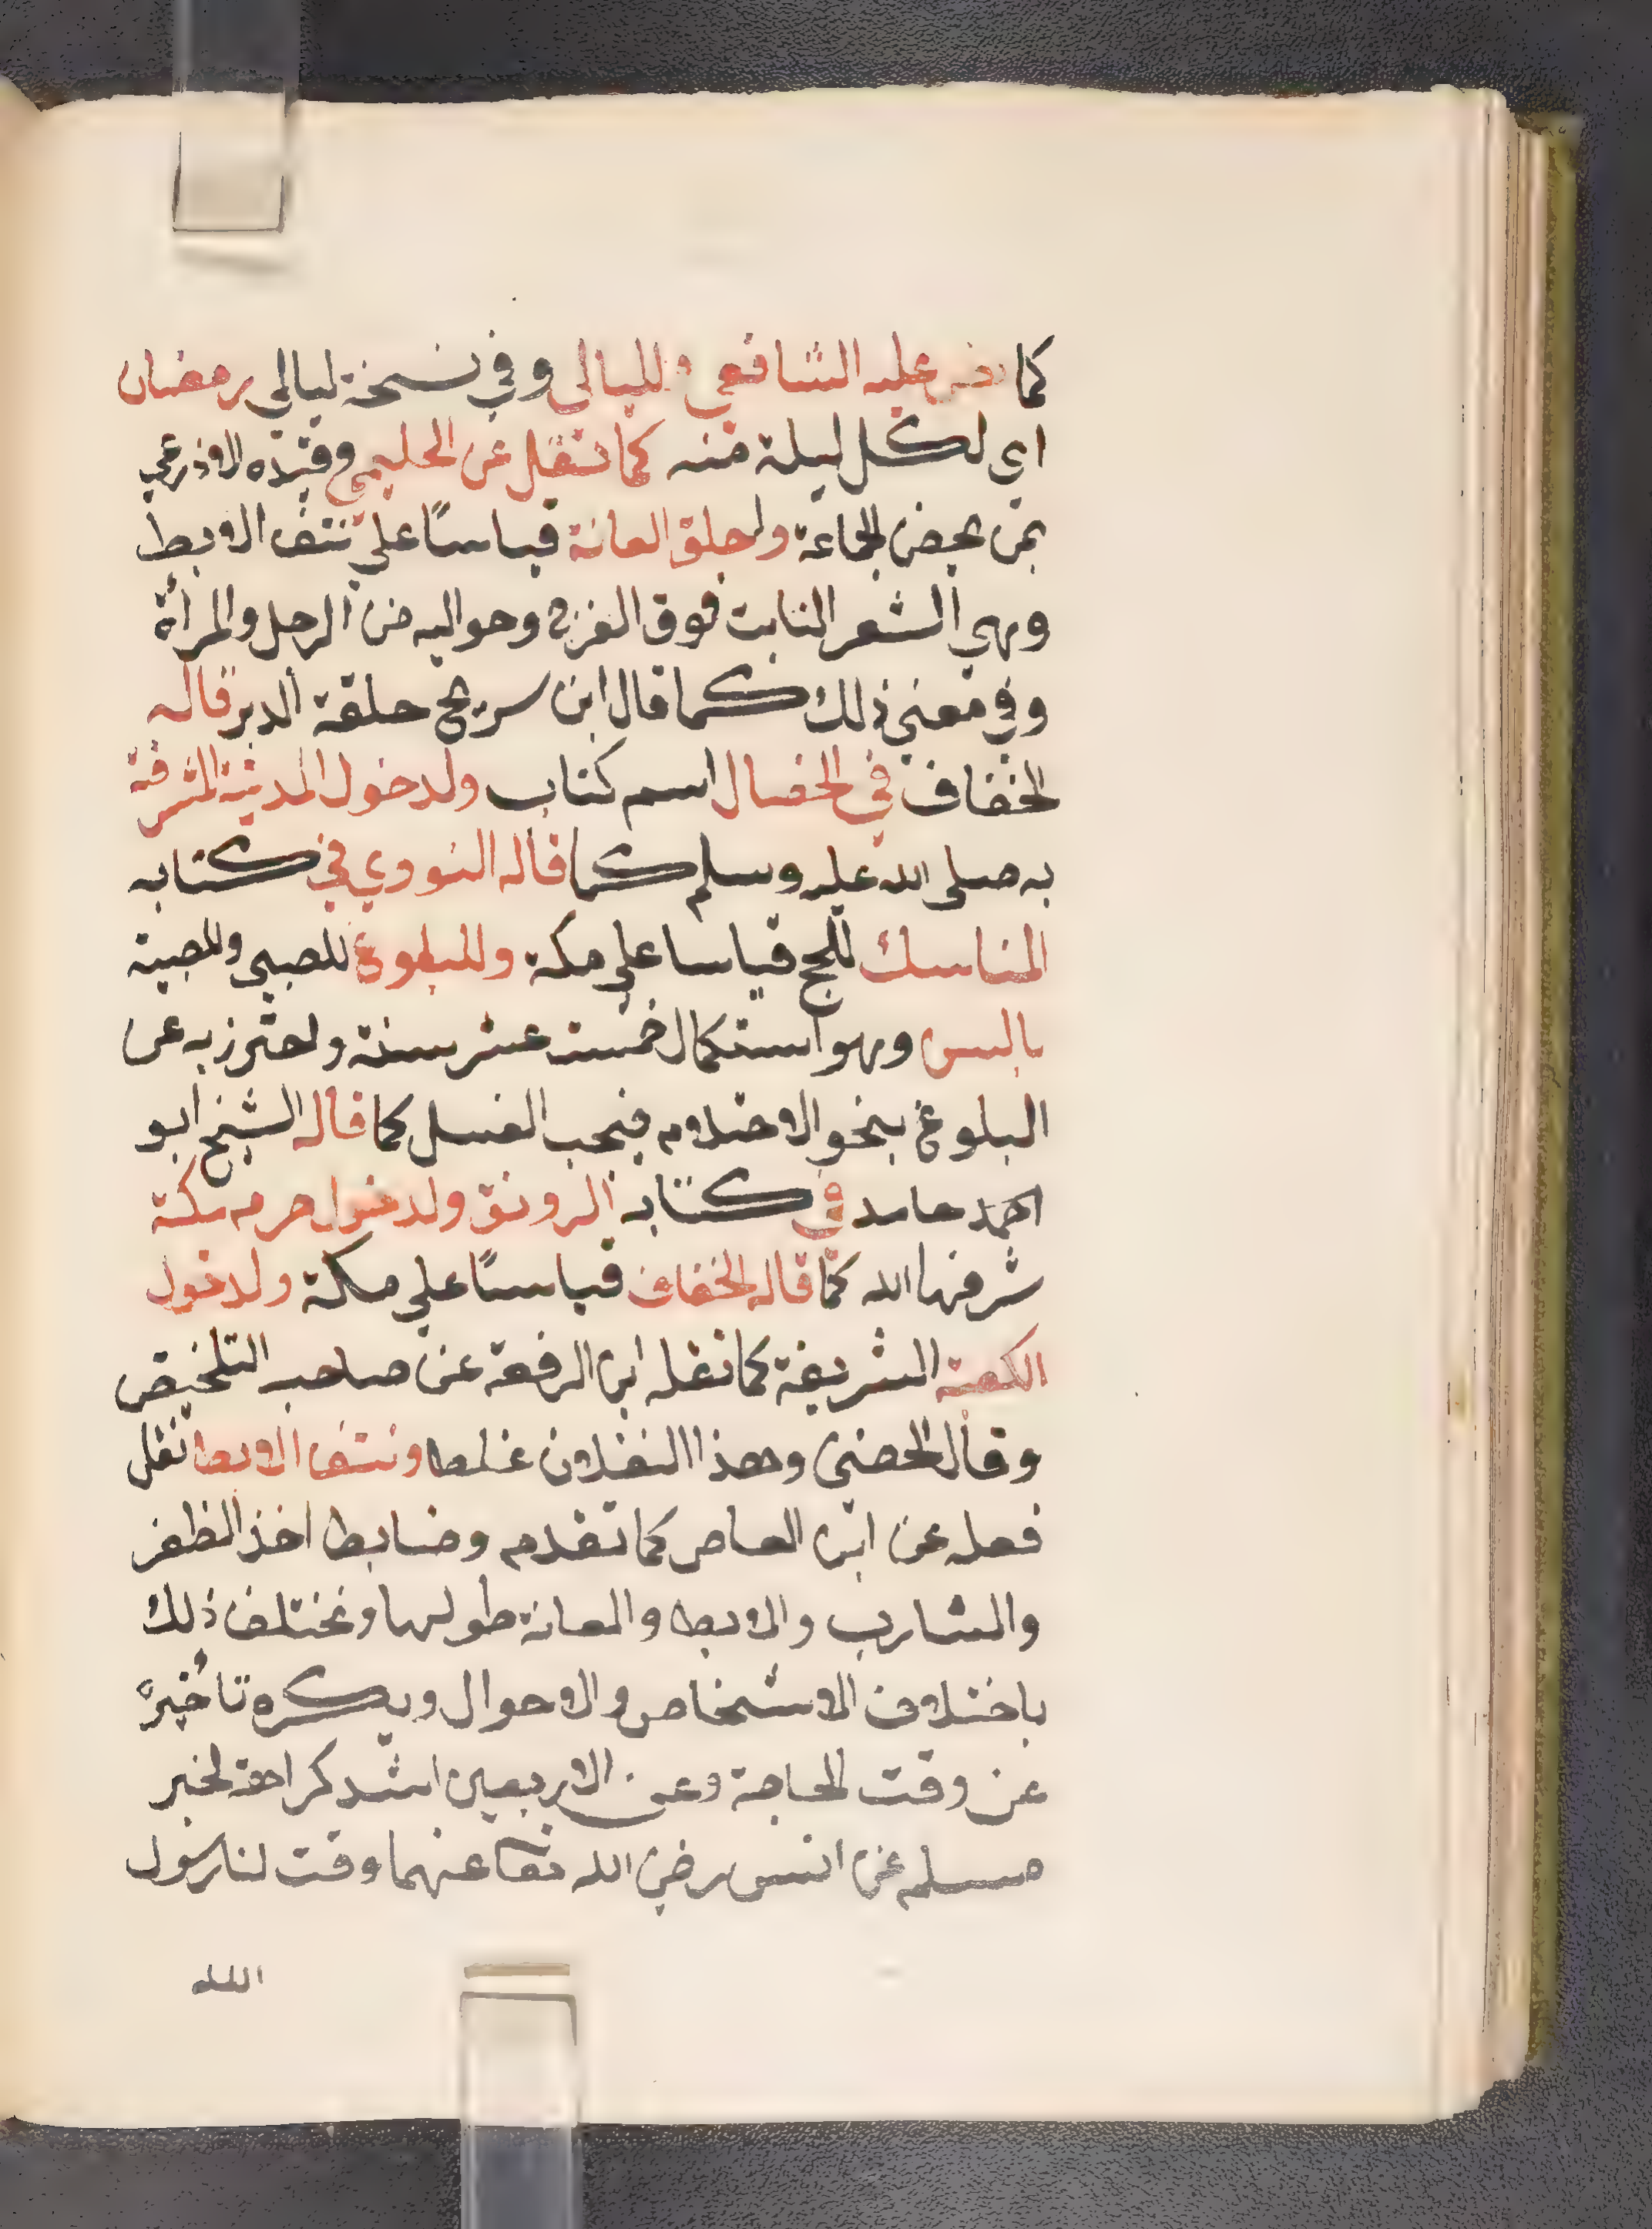 كما نص عليه الشافعي ولليالي وفي نسخة ليالي رمضان
اي لكل ليلة منه كما نقل عن الحليمي وقيده الاذرعي
بمن يحضر الجماعة ولحلق العانة قياسًا علي نتف الابط
وهي الشعر النابت فوق الفرج وحواليه من الرجل والمرأة
وفي معني ذلك كما قال ابن سريج حلقة الدبر قاله
الخفاف في الخصال اسم كتاب ولدخول المدينة المشرفة
به صلى الله عليه وسلم كما قاله النووي في كتابه
المناسك للحج قياسا علي مكة وللبلوغ للصبي والصبية
بالسن وهو استكمال خمست عشر سنة واحترز به عن
البلوغ بنحو الاحتلام فيجب الغسل كما قاله الشيخ ابو
احمد حامد في كتابه الرونق ولدخول حرم مكة
شرفها الله كما قاله الخفاف قياسًا علي مكة ولدخول
الكعبة الشريفة كما نقله ابن الرفعة عن صاحب التلخيص
وقال الحصني وهذا النقلان غلط ونتف الابط نقل
فعله عن ابن العاص كما تقدم وضابط اخذ الظفر
والشارب والابط والعانة طولها وتختلف ذلك
باختلاف الاشخاص والاحوال ويكره تأخير
عن وقت الحاجة وعن الاربعين اشد كراهة لخبر
مسلم عن انس رضي الله تعا عنهما وقت لنا رسول
الله